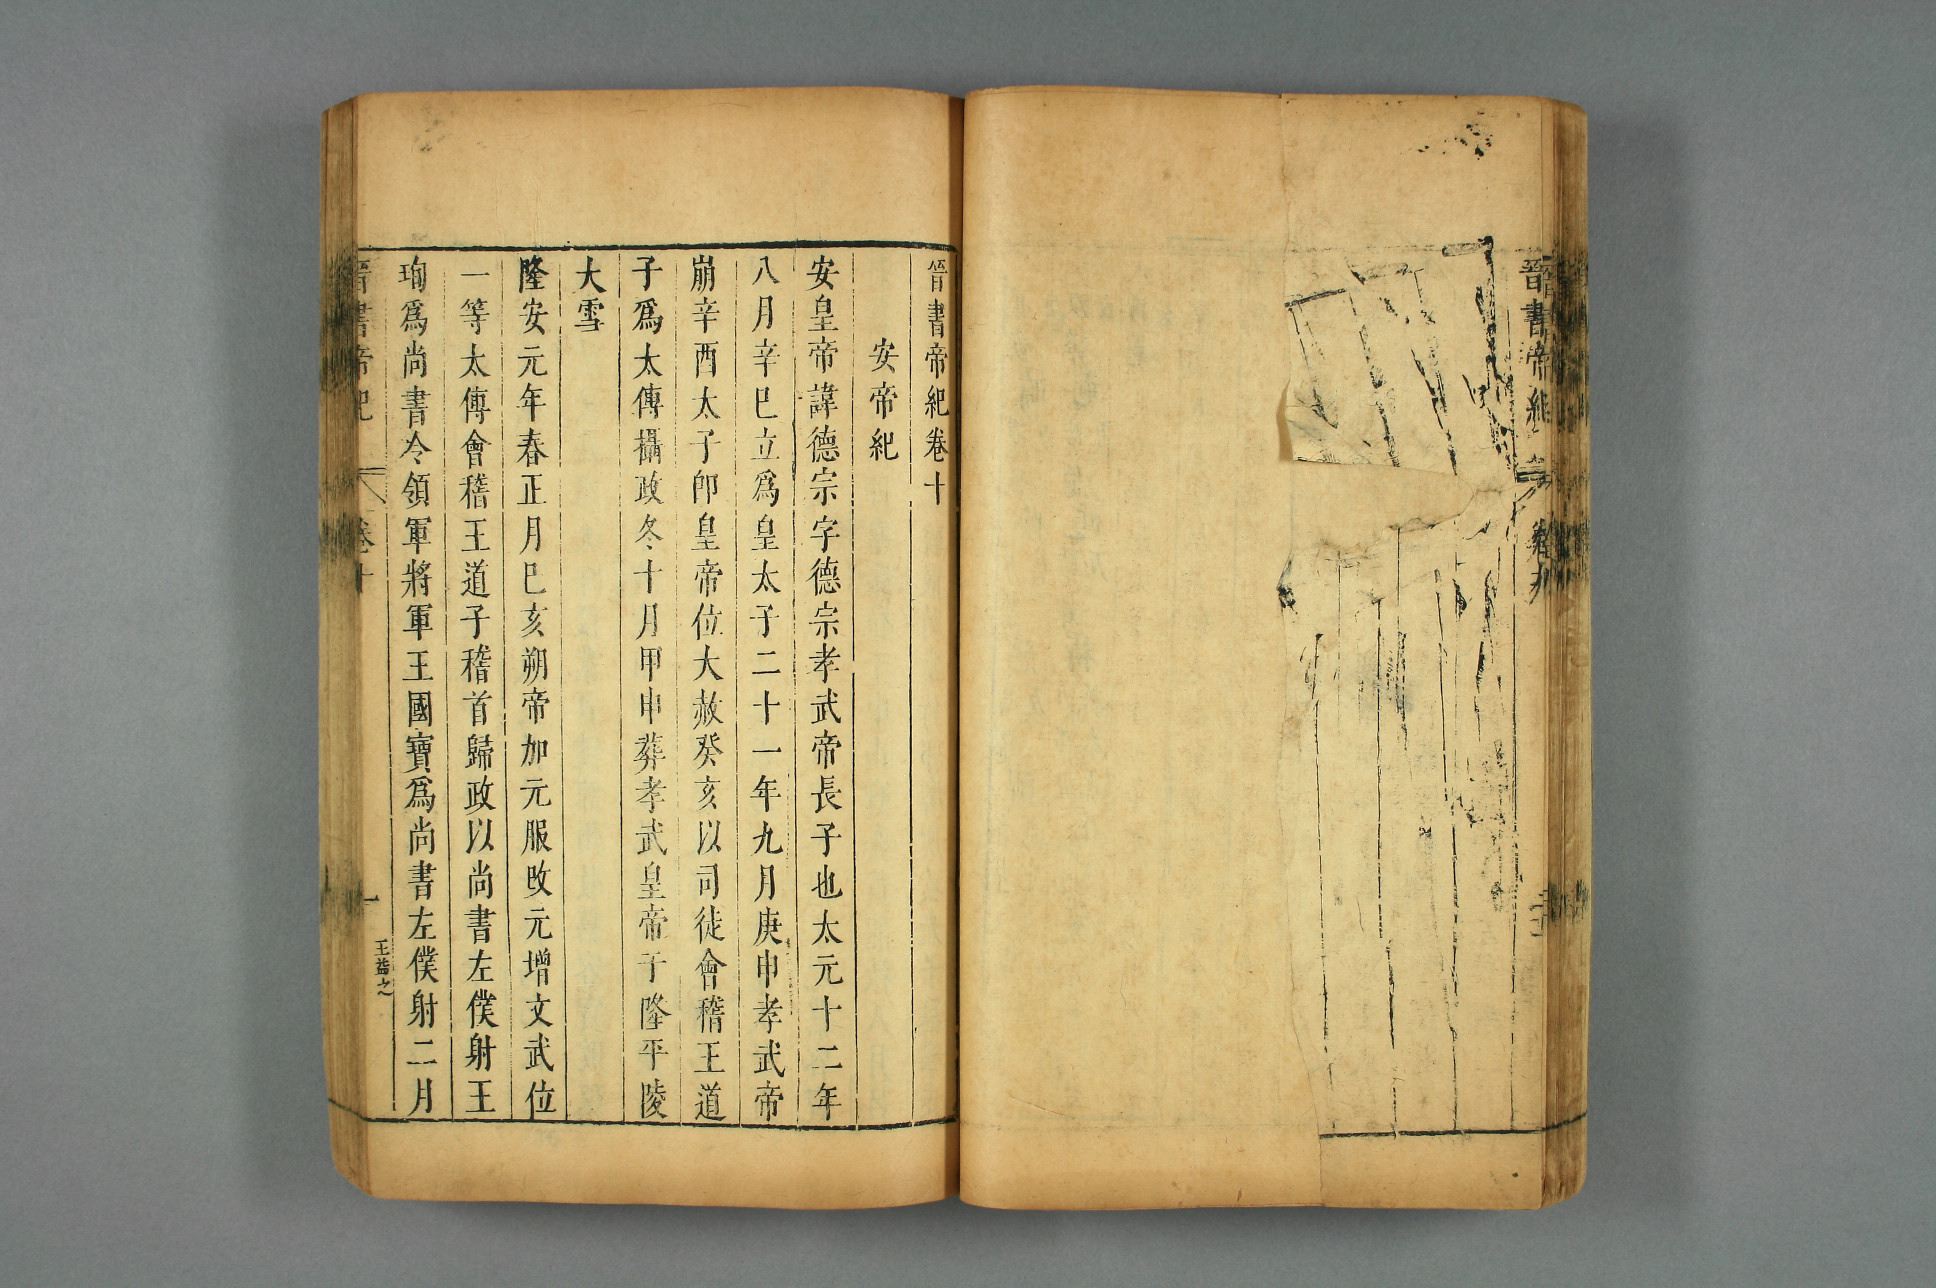 晉書帝紀
卷九
晉書帝紀卷十
安帝紀
安皇帝諱德宗字德宗孝武帝長子也太元十二年
八月辛巳立爲皇太子二十一年九月庚申孝武帝
崩辛酉太子卽皇帝位大赦癸亥以司徒會稽王道
子爲太傅攝政冬十月甲申葬孝武皇帝于隆平陵
大雪
隆安元年春正月巳亥朔帝加元服改元增文武位
一等太傅會稽王道子稽首歸政以尚書左僕射王
珣爲尚書令領軍將軍王國寶爲尚書左僕射二月
晉書帝紀
卷十
一
王益之